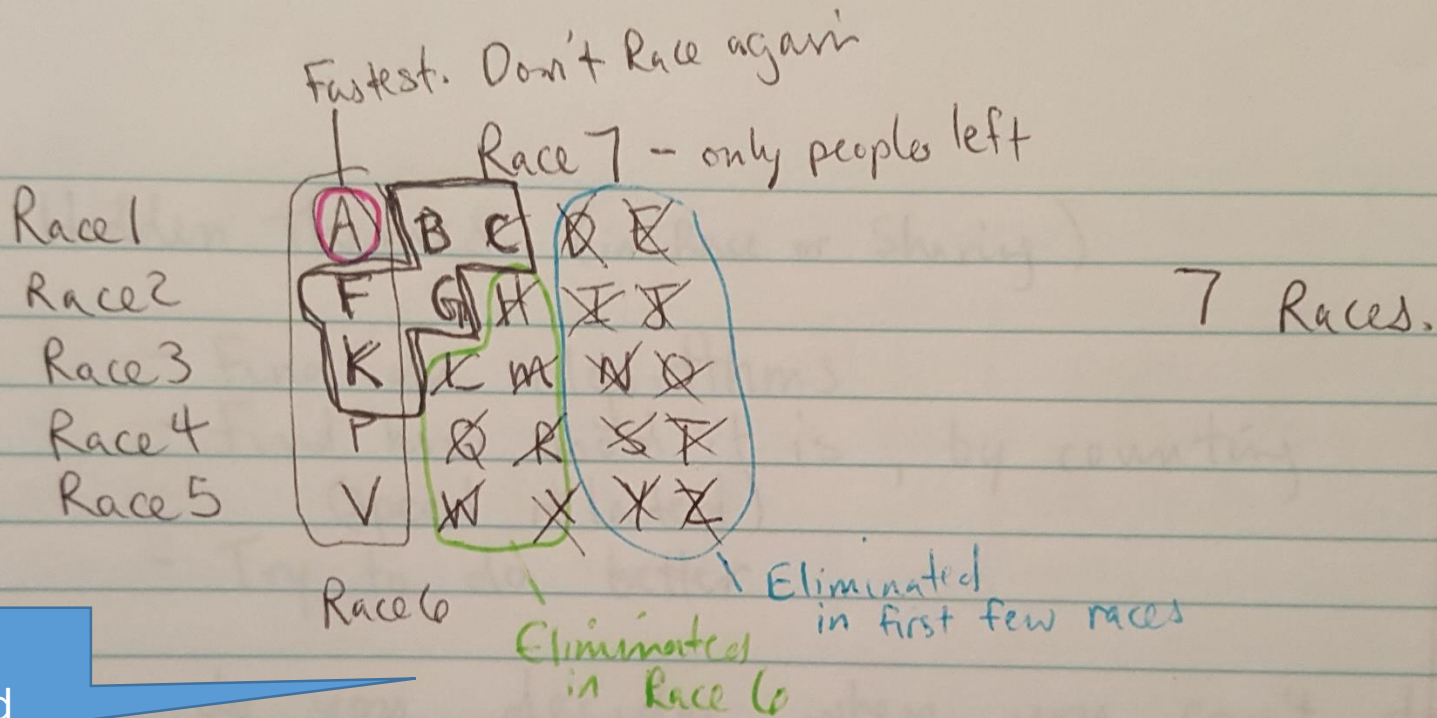 Fastest. Don't Race again
Race 7 - only peoples left
Race1 A B C D E
Race2 F G H I J
7 Races.
Race3 K L M N O
Race4 P Q R S T
Race5 V W X Y Z
Race6
Eliminated
in first few races
Eliminated
in Race 6
d